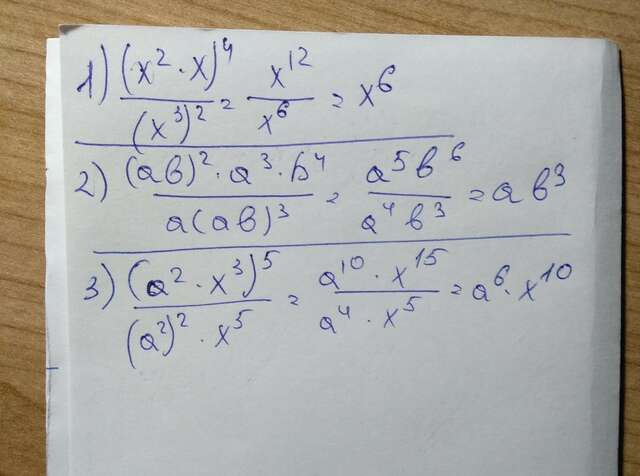 1) (x²·x)⁴/(x³)² = x¹²/x⁶ = x⁶
2) (ab)²·a³·b⁴/a(ab)³ = a⁵b⁶/a⁴b³ = ab³
3) (a²·x³)⁵/(a²)²·x⁵ = a¹⁰·x¹⁵/a⁴·x⁵ = a⁶·x¹⁰